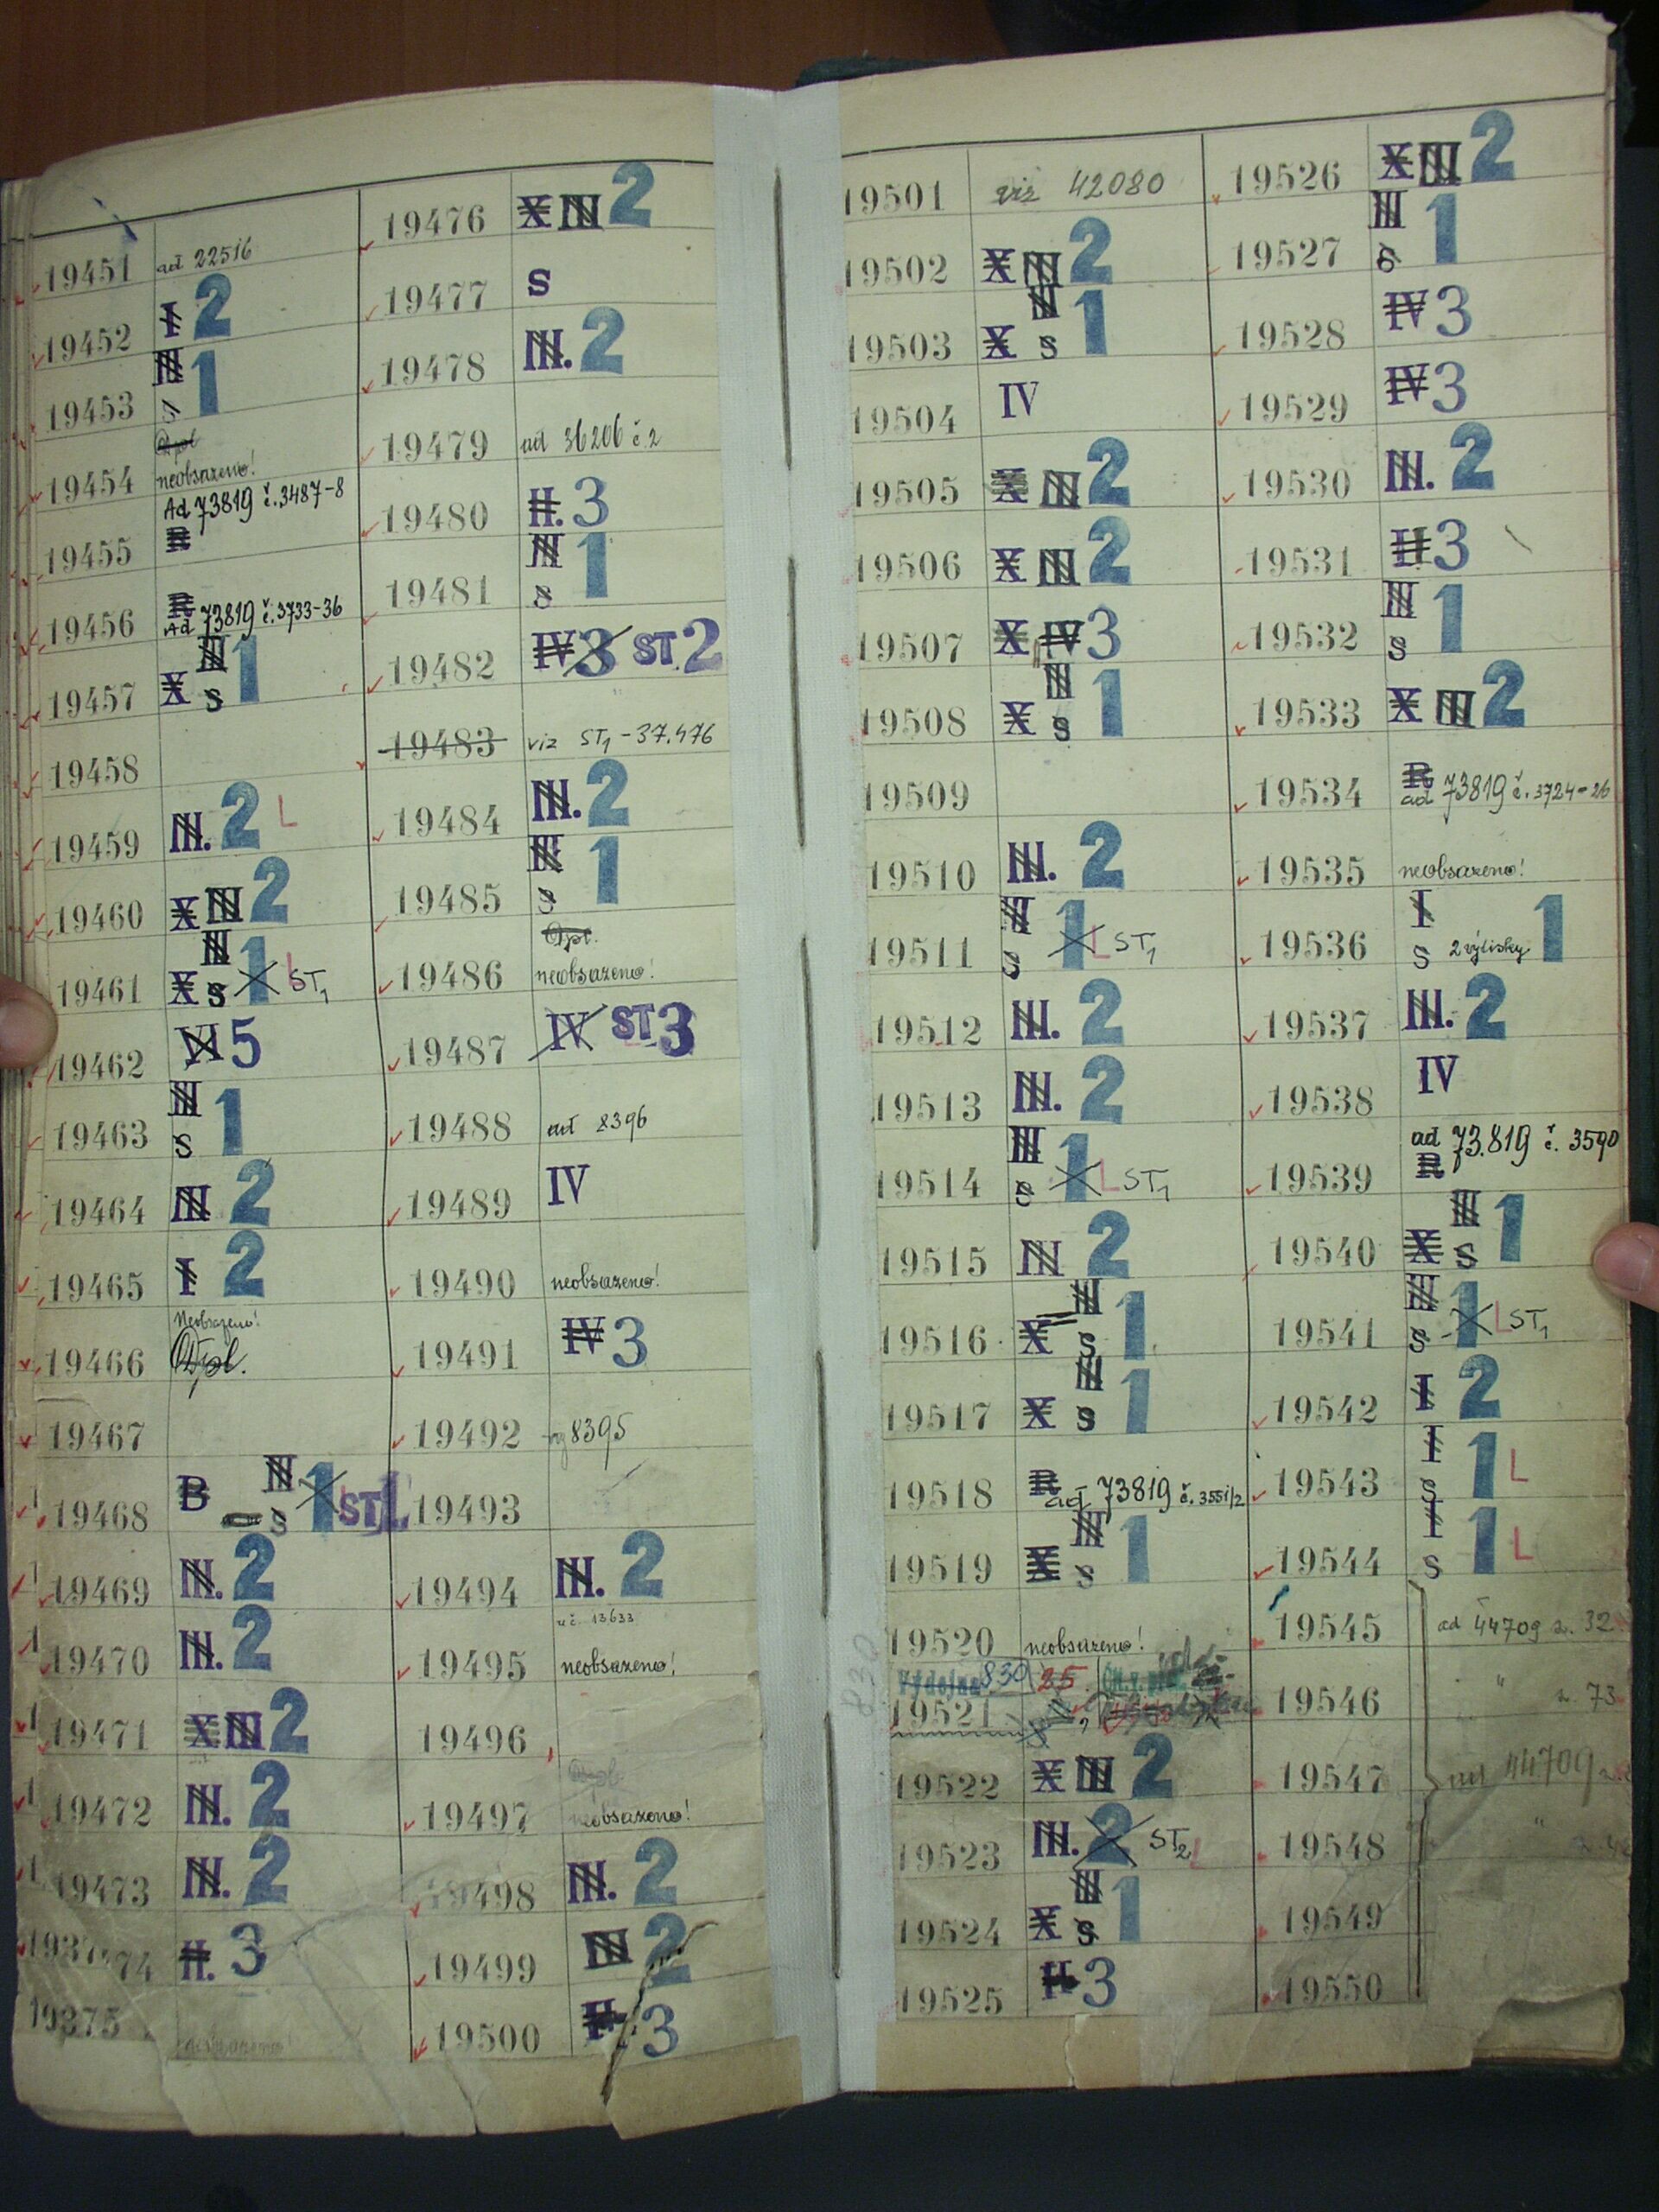 19451 ad 22516
19452 I 2
19453 III 1
S
19454 neobsazeno!
19455 Ad 73819 č.3487-8
R
19456 R
Ad 73819 č.3733-36
19457 X III S 1
19458
19459 III. 2 L
19460 X III 2
19461 X III S 1 L ST1
19462 VI 5
19463 III S 1
19464 III 2
19465 I 2
19466 Neobsazeno!
19467
19468 B III S 1 ST1
19469 III. 2
19470 III. 2
19471 X III 2
19472 III. 2
19473 III. 2
74 II. 3
19375
19476 X III 2
19477 S
19478 III. 2
19479 ad 36206 č 2
19480 II. 3
19481 III S 1
19482 IV 3 ST 2
19483 viz ST1 - 37.476
19484 III. 2
19485 III S 1
19486 Dpl.
neobsazeno!
19487 IV ST 3
19488 ad 8396
19489 IV
19490 neobsazeno!
19491 IV 3
19492 8395
19493
19494 III. 2
19495 č. 13633
neobsazeno!
19496
19497 neobsazeno!
19498 III. 2
19499 III 2
19500 II. 3
19501 viz 42080
19502 X III 2
19503 X III S 1
19504 IV
19505 X III 2
19506 X III 2
19507 X IV 3
19508 X III S 1
19509
19510 III. 2
19511 III S 1 L ST1
19512 III. 2
19513 III. 2
19514 III S 1 L ST1
19515 III 2
19516 X III S 1
19517 X III S 1
19518 R
ad 73819 č. 3551/2
19519 X III S 1
19520 neobsazeno!
Výdejna 830 25
19521
19522 X III 2
19523 III. 2 ST2 L
19524 X III S 1
19525 II 3
830
19526 X III 2
19527 III S 1
19528 IV 3
19529 IV 3
19530 III. 2
19531 II 3
19532 III S 1
19533 X III 2
19534 R
ad 73819 č. 3724-26
19535 neobsazeno!
19536 I S 2 výtisky 1
19537 III. 2
19538 IV
19539 ad 73.819 č. 3590
R
19540 X III S 1
19541 III S 1 L ST1
19542 I 2
19543 I S 1 L
19544 I S 1 L
19545 ad 44709 z. 32
19546 " z. 73
19547 ad 44709
19548 "
19549
19550